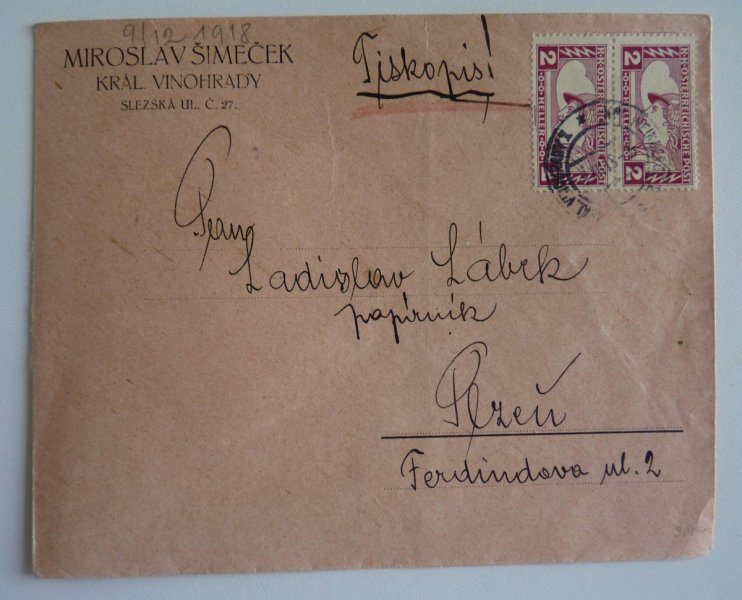 9/12 1918
MIROSLAV ŠIMEČEK
KRÁL. VINOHRADY
SLEZSKÁ UL. Č. 27.
Tiskopis!
2 K·K·ÖSTERREICHISCHE·POST 2 HELLER
2 K·K·ÖSTERREICHISCHE·POST 2 HELLER
Pan
Ladislav Lábek
papírník
Plzeň
Ferdindova ul. 2